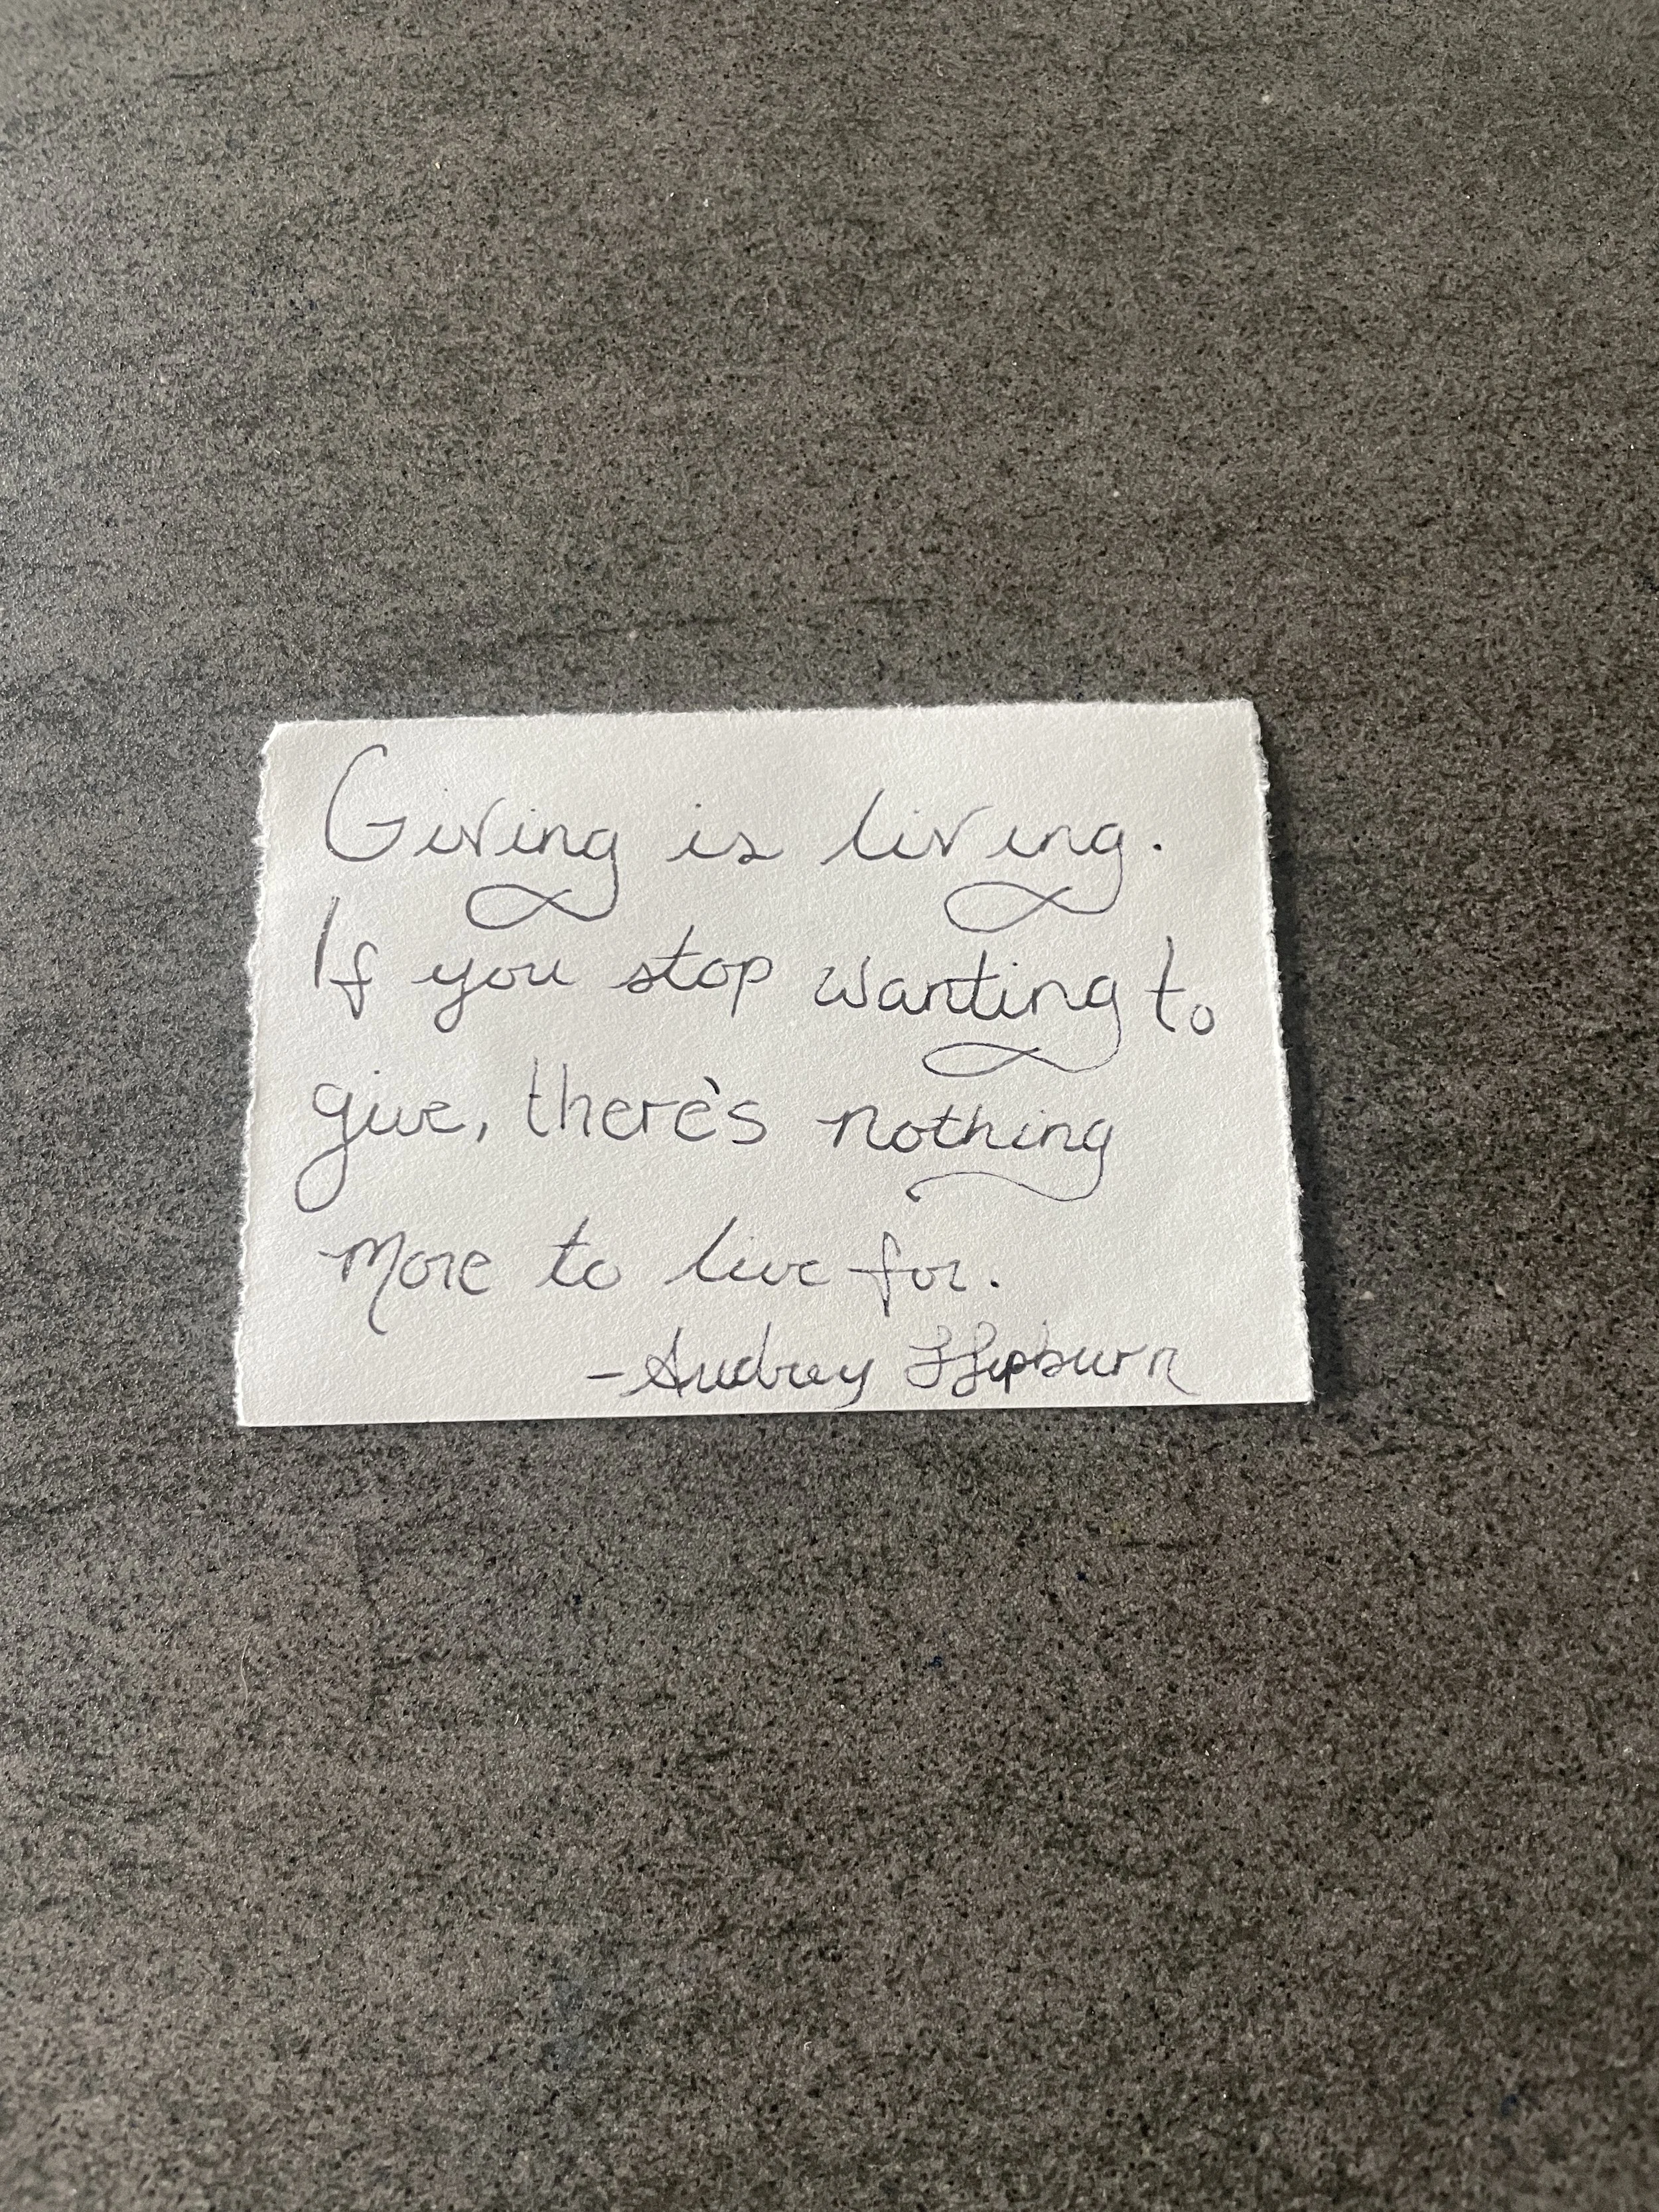 Giving is living.
If you stop wanting to
give, there's nothing
more to live for.
- Audrey Hepburn